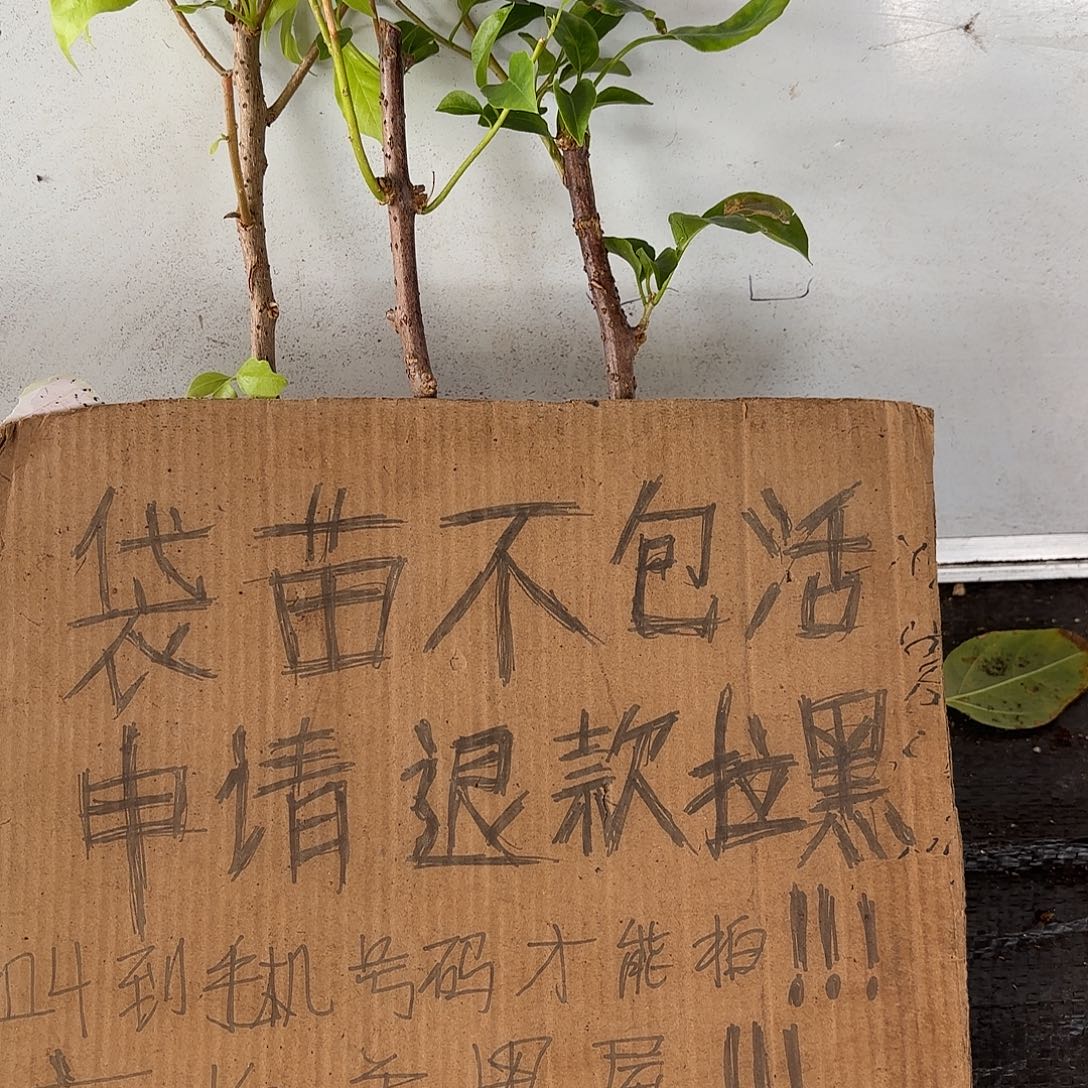 袋苗不包活
申请退款拉黑
叫到手机号码才能拍!!!
!!!